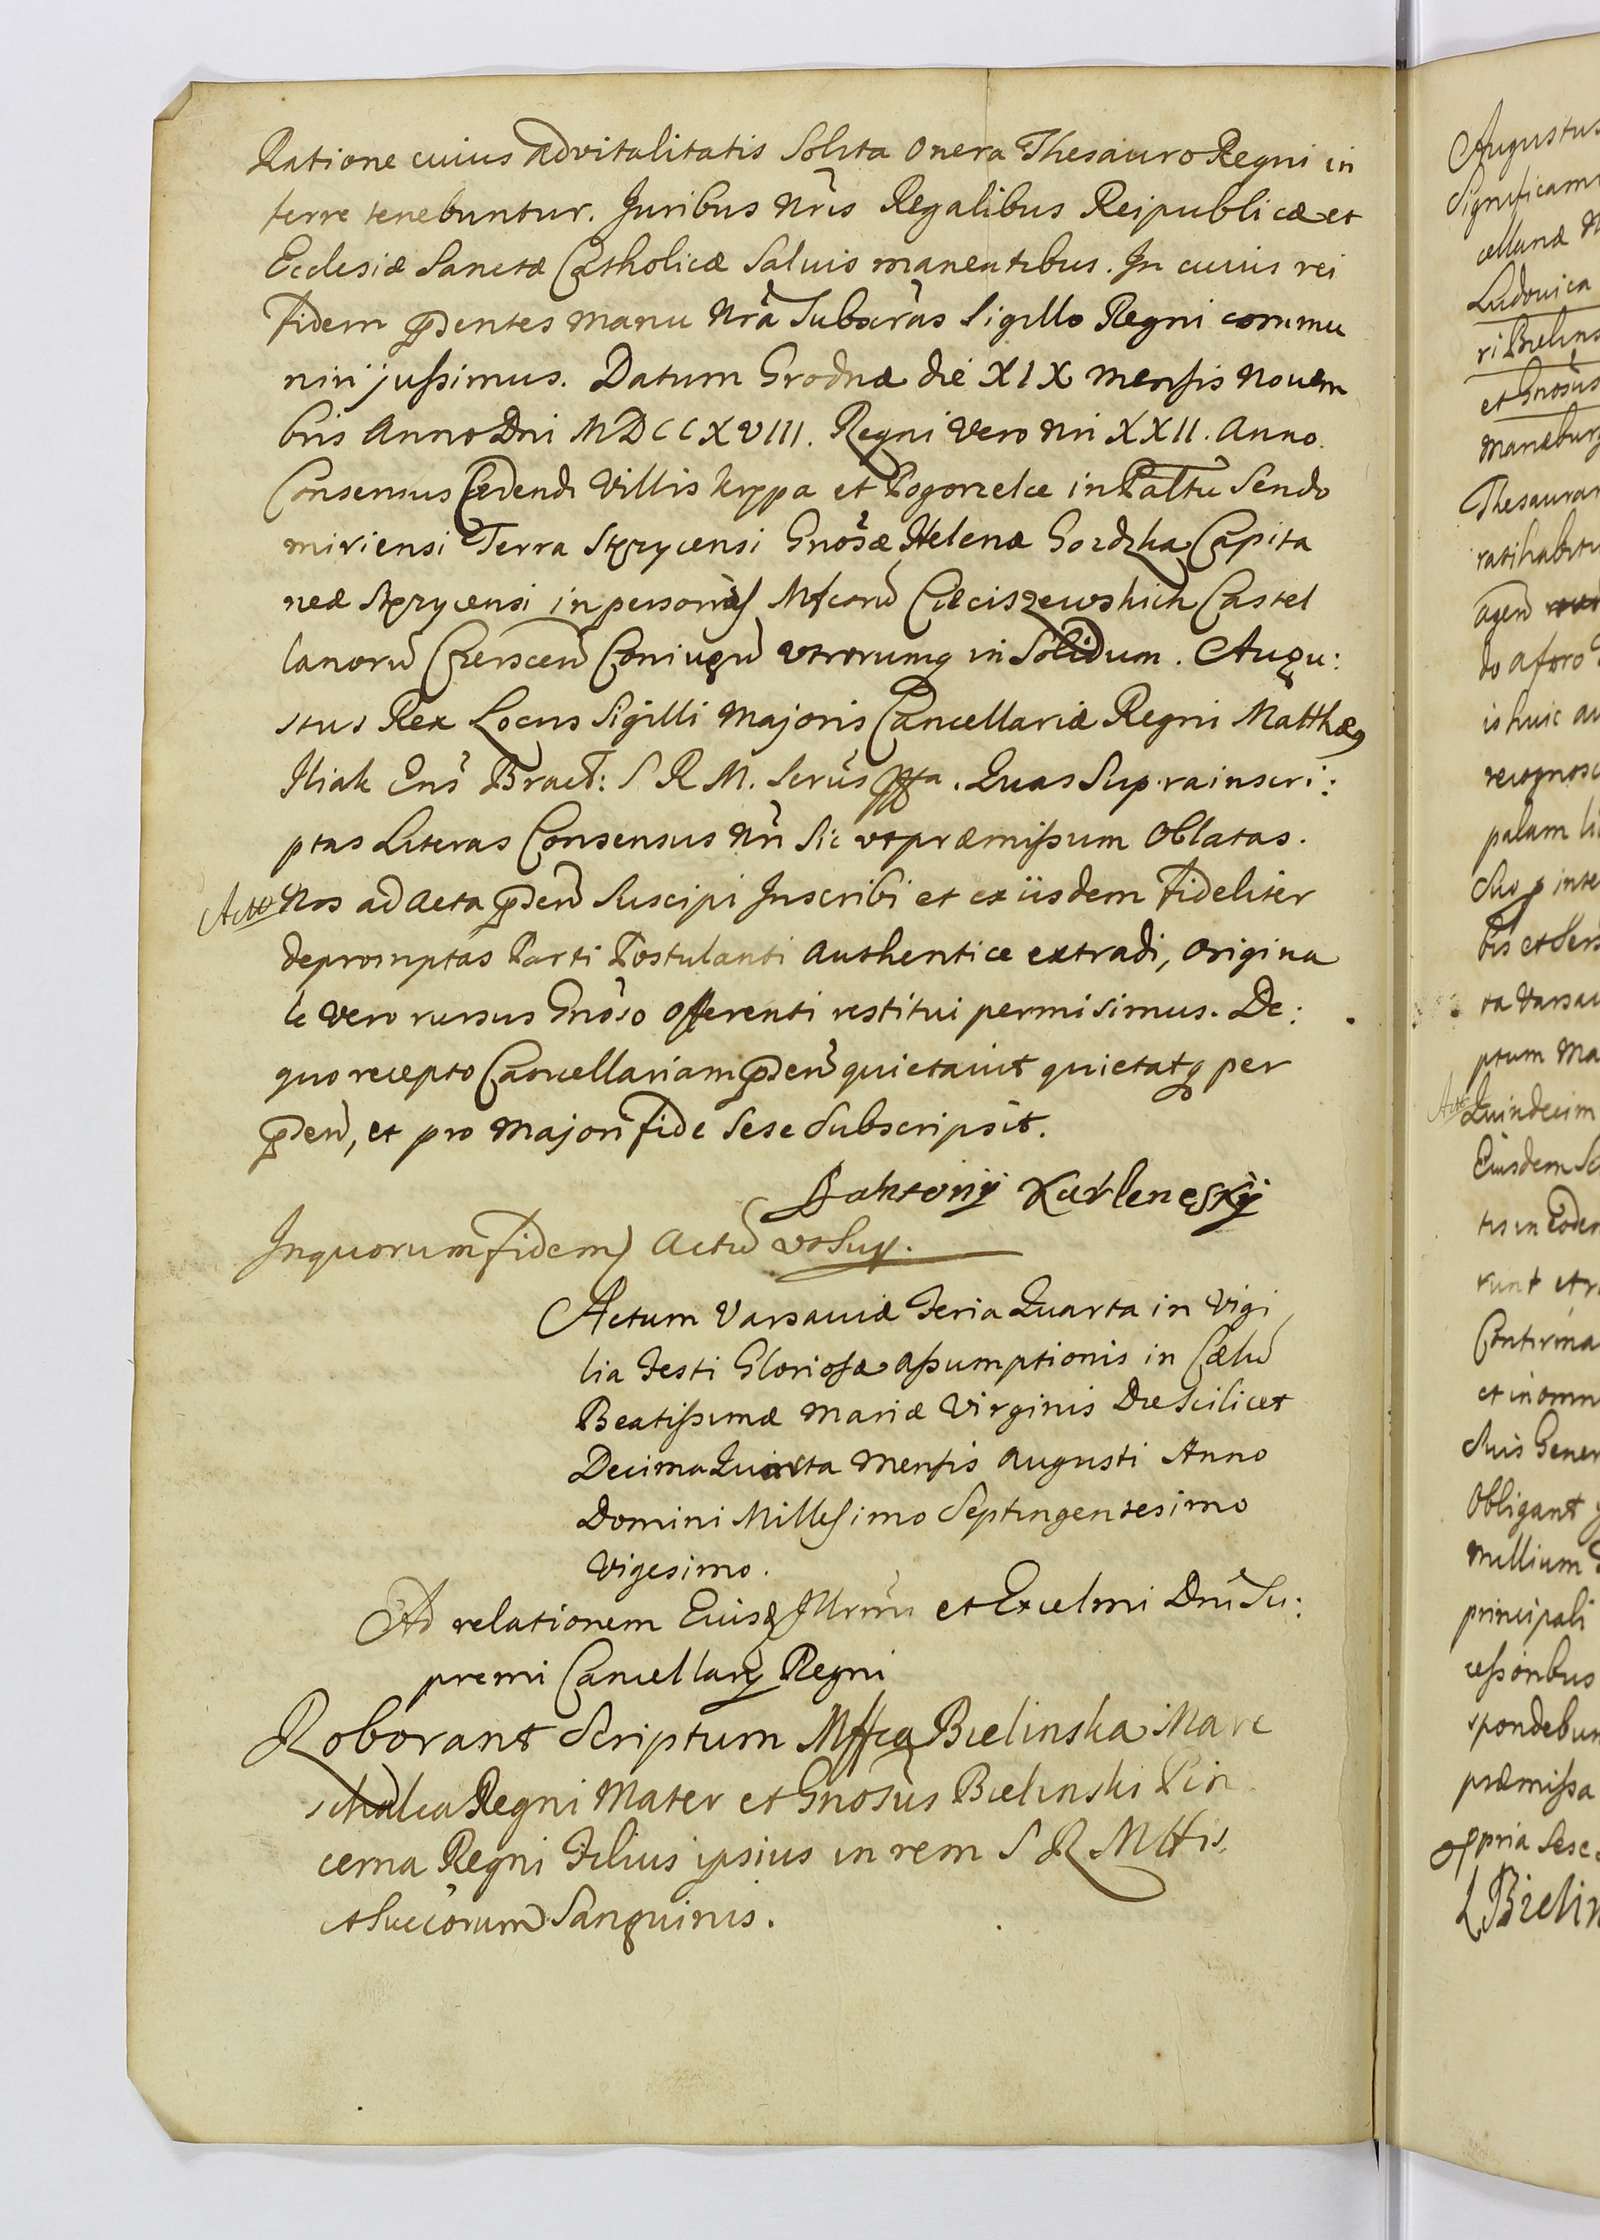 Ratione cuius advitalitatis Solita onera Thesauro Regni in
ferre tenebuntur. Juribus nris Regalibus Reipublicæ et
Ecclesiæ Sanctæ Catholicæ Saluis manentibus. In cuius rei
fidem pñdentes manu nrã Subscrãs Sigillo Regni commu
niri jussimus. Datum Grodnæ die XIX mensis Novem
bris Anno Dni MDCCXVIII. Regni vero nri XXII. Anno.
Consensus Cedendi Villis Kępa et Pogorzelce in Pałtu Sendo
miriensi Terra Stęzycensi Gnosæ Helenæ Gozdzka Capita
neæ Stęzycensi in personas Mfcorũ Cieciszewskich Castel
lanorũ Czerscen Coniugũ utrorumq in Solidum. Augu:
stus Rex Locus Sigilli Majoris Cancellariæ Regni Matthæ9
Iliak Ens Bract: S R M. Scrius mppa. Quas Supra inscri:
ptas Literas Consensus Nri Sic ut præmissum Oblatas.
Actor Nos ad Acta pñdem Suscipi Inscribi et ex iisdem fideliter
depromptas Parti Postulanti authentice extradi, origina
le vero rursus Gnoso offerenti restitui permisimus. De:
quo recepto Cancellariam pñdem quietavit quietatq per
pñden, et pro majori fide Sese Subscripsit.
In quorum fidem Actũ ut Sup.
Actum Varsaviæ Feria Quarta in Vigi
lia Festi Gloriosæ assumptionis in Cælũ
Beatissimæ Mariæ Virginis Die Scilicet
Decima Quarta mensis Augusti Anno
Domini Millesimo Septingentesimo
Vigesimo.
Ad relationem Eiusd Illrmi et Excelmi Dni Su:
premi Cancellarÿ Regni
Roborant Scriptum Mffca Bielinska Mare
schalca Regni Mater et Gnosus Bielinski Pin
cerna Regni Filius ipsius in rem S R Mttis.
et Succorum Sanguinis.
Augustus
Significam
cellariæ N
Ludovica
ri Bielins
et Gnosus
Marieburg
Thesaurar
ratihabitu
do a foro
is huic au
recognosc
palam li
bis et Ser
ra Varsau
ptum Ma
Quindecim
Eiusdem Sc
tis in Eoden
runt et r
Confirma
et in omn
chis Gener
obligant
millium
principali
cessoribus
spondebun
præmissa
ppria Sese
L Bielin